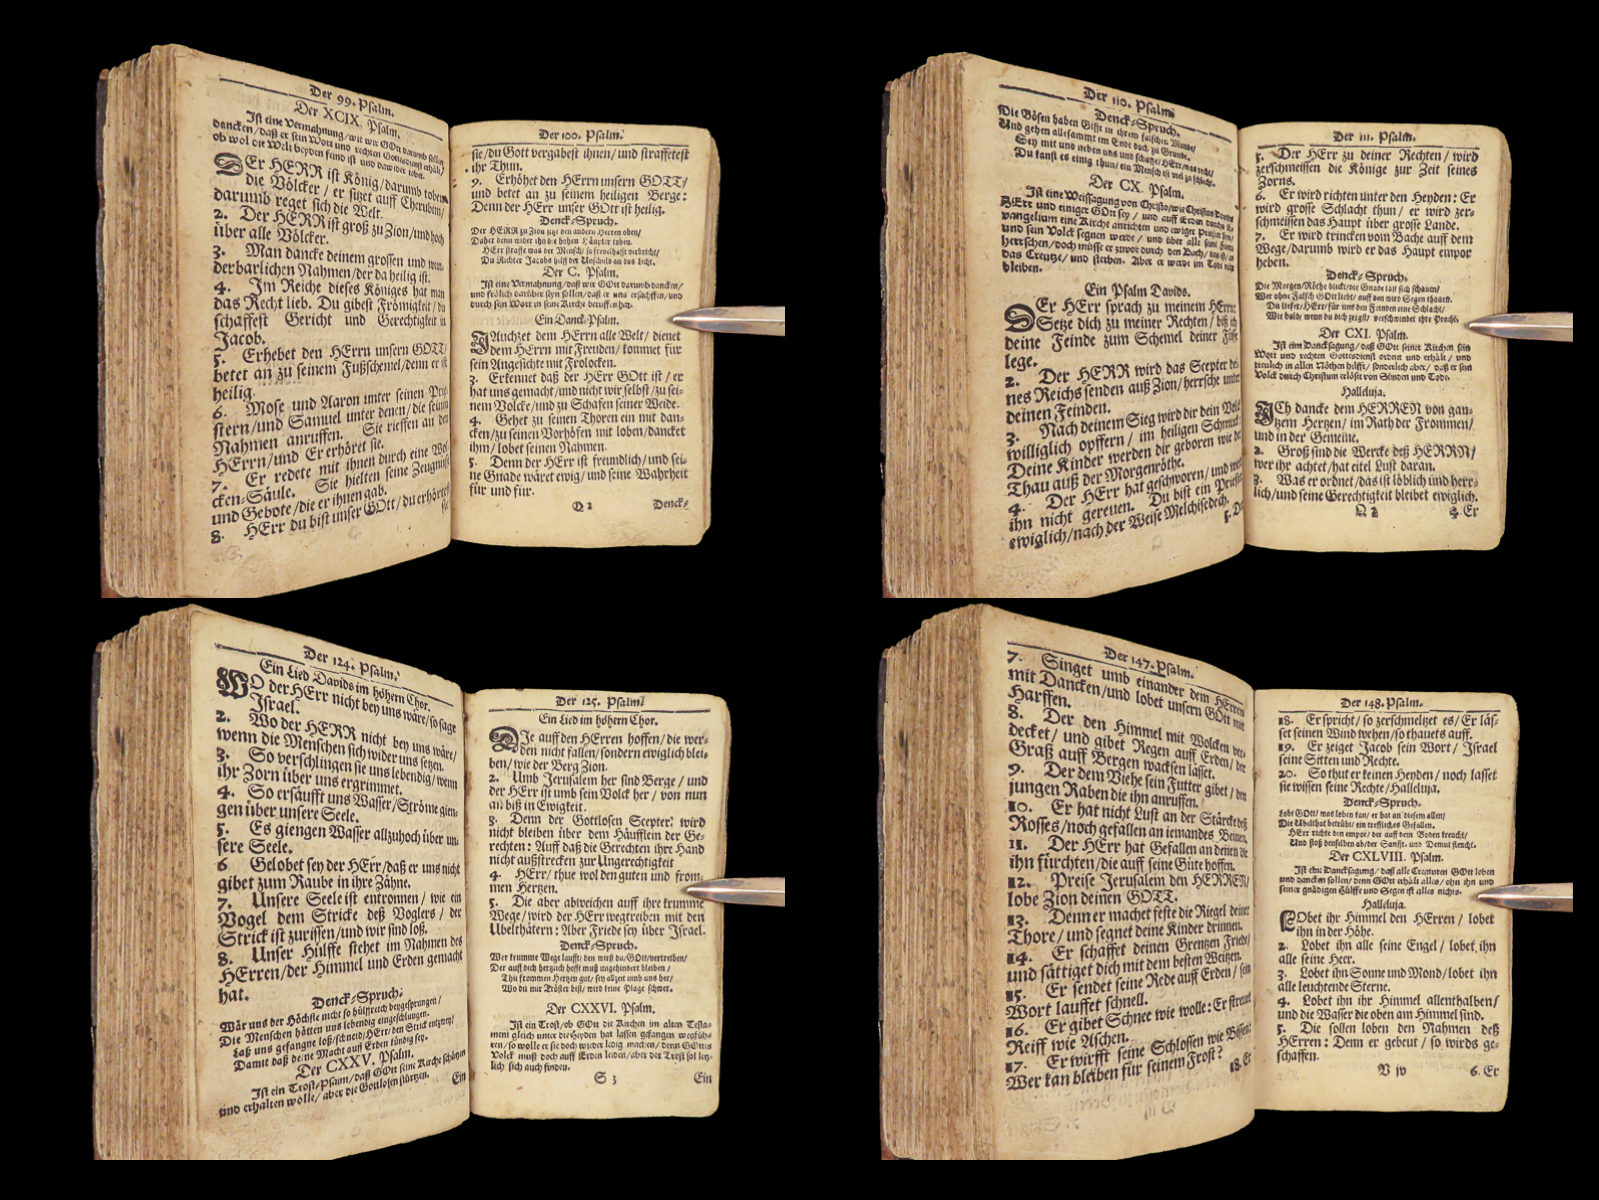 Der 99. Psalm.
Der XCIX. Psalm.
Ist eine Vermahnung/wie wir GOtt darumb sollen
dancken/daß er sein Wort und rechten Gottesdienst erhält/
ob wol die Welt beyden feind ist und dawider tobet.
DEr HERR ist König/darumb toben
die Völcker/ er sitzet auff Cherubim/
darumb reget sich die Welt.
2. Der HERR ist groß zu Zion/und hoch
über alle Völcker.
3. Man dancke deinem grossen und wun-
derbarlichen Nahmen/der da heilig ist.
4. Im Reiche dieses Königes hat man
das Recht lieb. Du gibest Frömigkeit/ du
schaffest Gericht und Gerechtigkeit in
Jacob.
5. Erhebet den HErrn unsern GOTT/
betet an zu seinem Fußschemel/denn er ist
heilig.
6. Mose und Aaron unter seinen Prie-
stern/und Samuel unter denen/die seinen
Nahmen anruffen. Sie rieffen an den
HErrn/und Er erhöret sie.
7. Er redete mit ihnen durch eine Wol-
cken-Säule. Sie hielten seine Zeugnuß
und Gebote/die er ihnen gab.
8. HErr du bist unser GOtt/du erhörtest
Der 100. Psalm.
sie/du Gott vergabest ihnen/und straffetest
ihr Thun.
9. Erhöhet den HErrn unsern GOTT/
und betet an zu seinem heiligen Berge:
Denn der HErr unser GOtt ist heilig.
Denck-Spruch.
Der HERR zu Zion sitzt den andern Herren oben/
Daher denn wider ihn die hohen Häupter toben.
HErr straffe was der Mensch/so frevelhafft verbricht/
Du Richter Jacobs hilff der Unschuld an das Licht.
Der C. Psalm.
Ist eine Vermahnung/daß wir GOtt darumb dancken/
und frölich darüber seyn sollen/daß er uns erschaffen/und
durch sein Wort in seine Kirche beruffen hat.
Ein Danck-Psalm.
JAuchzet dem HErrn alle Welt/ dienet
dem HErrn mit Freuden/ kommet für
sein Angesichte mit Frolocken.
3. Erkennet daß der HErr GOtt ist/ er
hat uns gemacht/und nicht wir selbst/zu sei-
nem Volcke/und zu Schafen seiner Weide.
4. Gehet zu seinen Thoren ein mit dan-
cken/zu seinen Vorhöfen mit loben/dancket
ihm/lobet seinen Nahmen.
5. Denn der HErr ist freundlich/und sei-
ne Gnade wäret ewig/und seine Wahrheit
für und für.
Q 2 Denck-
Der 110. Psalm.
Denck-Spruch.
Die Bösen haben Gifft in ihrem falschen Munde/
Und gehen allesammt im Ende doch zu Grunde.
Sey mit und neben uns und schütze/HErr/
Du kanst es einig thun/ein Mensch ist viel zu schlecht.
Der CX. Psalm.
Ist eine Weissagung von Christo/wie Christus Davids
HErr und einiger GOtt sey / und auff Erden durchs E-
vangelium eine Kirche anrichten und ewiger Priester seyn/
und sein Volck segnen werde / und über alle seine Feind
herrschen/doch müsse er zuvor durch den Bach/das ist/an
das Creutze/ und sterben. Aber er werde im Tode nicht
bleiben.
Ein Psalm Davids.
DEr HErr sprach zu meinem HErrn:
Setze dich zu meiner Rechten/ biß ich
deine Feinde zum Schemel deiner Füsse
lege.
2. Der HERR wird das Scepter dei-
nes Reichs senden auß Zion/herrsche unter
deinen Feinden.
3. Nach deinem Sieg wird dir dein Volck
williglich opffern/ im heiligen Schmuck
Deine Kinder werden dir geboren wie der
Thau auß der Morgenröthe.
4. Der HErr hat geschworen/ und wird
ihn nicht gereuen. Du bist ein Priester
ewiglich/nach der Weise Melchisedech.
5. Der
Der 111. Psalm.
5. Der HErr zu deiner Rechten/ wird
zerschmeissen die Könige zur Zeit seines
Zorns.
6. Er wird richten unter den Heyden: Er
wird grosse Schlacht thun/ er wird zer-
schmeissen das Haupt über grosse Lande.
7. Er wird trincken vom Bache auff dem
Wege/darumb wird er das Haupt empor
heben.
Denck-Spruch.
Die Morgen-Röthe blickt/die Gnade läst sich schauen/
Wer ohne Falsch GOtt liebt/ auff den wird Segen thauen.
Du lieffer/HErr/für uns den Feinden eine Schlacht/
Wie bald/wenn du dich zeigst/ verschwindet ihre Pracht.
Der CXI. Psalm.
Ist ein Dancksagung/daß GOtt seiner Kirchen sein
Wort und rechten Gottesdienst ordnet und erhält / und
treulich in allen Nöthen hilfft/ sonderlich aber/ daß er sein
Volck durch Christum erlöset von Sünden und Tode.
Halleluja.
ICh dancke dem HERREN von gan-
tzem Hertzen/ im Rath der Frommen/
und in der Gemeine.
2. Groß sind die Wercke deß HERRN/
wer ihr achtet/hat eitel Lust daran.
3. Was er ordnet/das ist löblich und herr-
lich/und seine Gerechtigkeit bleibet ewiglich.
Q 2 4. Er
Der 124. Psalm.
Ein Lied Davids im höhern Chor.
WO der HErr nicht bey uns wäre/so sage
Israel.
2. Wo der HERR nicht bey uns wäre/
wenn die Menschen sich wider uns setzen.
3. So verschlingen sie uns lebendig/wenn
ihr Zorn über uns ergrimmet.
4. So ersäufft uns Wasser/Ströme gien-
gen über unsere Seele.
5. Es giengen Wasser allzuhoch über un-
sere Seele.
6. Gelobet sey der HErr/daß er uns nicht
gibet zum Raube in ihre Zähne.
7. Unsere Seele ist entronnen/ wie ein
Vogel dem Stricke deß Voglers/ der
Strick ist zurissen/und wir sind loß.
8. Unser Hülffe stehet im Nahmen des
HErren/der Himmel und Erden gemacht
hat.
Denck-Spruch:
Wär uns der Höchste nicht so hülffreich beygesprungen/
Die Menschen hätten uns lebendig eingeschlungen.
Laß uns gefangne loß/schneid/HErr/den Strick entzwey/
Damit daß deine Macht auff Erden kündig sey.
Der CXXV. Psalm.
Ist ein Trost-Psalm/daß GOtt seine Kirche schützen
und erhalten wolle/ aber die Gottlosen stürtzen.
Ein
Der 125. Psalm.
Ein Lied im höhern Chor.
DIe auff den HErren hoffen/ die wer-
den nicht fallen/sondern ewiglich blei-
ben/wie der Berg Zion.
2. Umb Jerusalem her sind Berge/ und
der HErr ist umb sein Volck her/ von nun
an biß in Ewigkeit.
3. Denn der Gottlosen Scepter wird
nicht bleiben über dem Häufflein der Ge-
rechten: Auff daß die Gerechten ihre Hand
nicht außstrecken zur Ungerechtigkeit
4. HErr/ thue wol den guten und from-
men Hertzen.
5. Die aber abweichen auff ihre krumme
Wege/wird der HErr wegtreiben mit den
Ubelthätern: Aber Friede sey über Israel.
Denck-Spruch.
Wer krumme Wege laufft/den wirst du/GOtt/vertreiben/
Der auff dich hertzlich hofft muß ungehindert bleiben/
Thu frommen Hertzen gut/sey allzeit umb uns her/
Wo du nur Tröster bist/ wird keine Plage schwer.
Der CXXVI. Psalm.
Ist ein Trost/ob GOtt die Kirchen im alten Testa-
ment gleich unter die Heyden hat lassen gefangen wegfüh-
ren/so wolle er sie doch wieder ledig machen/denn GOttes
Volck muß doch auff Erden leiden/aber der Trost sol letz-
lich sich auch finden.
S 3 Ein
Der 147. Psalm.
7. Singet umb einander dem HErren
mit Dancken/und lobet unsern GOtt mit
Harffen.
8. Der den Himmel mit Wolcken ver-
decket/ und gibet Regen auff Erden/ der
Graß auff Bergen wachsen lässet.
9. Der dem Viehe sein Futter gibet/ den
jungen Raben die ihn anruffen.
10. Er hat nicht Lust an der Stärcke deß
Rosses/noch gefallen an iemandes Beinen.
11. Der HErr hat Gefallen an denen die
ihn fürchten/die auff seine Güte hoffen.
12. Preise Jerusalem den HERREN/
lobe Zion deinen GOTT.
13. Denn er machet feste die Riegel deiner
Thore/ und segnet deine Kinder drinnen.
14. Er schaffet deinen Grentzen Friede/
und sättiget dich mit dem besten Weitzen.
15. Er sendet seine Rede auff Erden/ sein
Wort lauffet schnell.
16. Er gibet Schnee wie wolle: Er streuet
Reiff wie Aschen.
17. Er wirfft seine Schlossen wie Bissen:
Wer kan bleiben für seinem Frost?
18. Er
Der 148. Psalm.
18. Er spricht/ so zerschmeltzet es/ Er läs-
set seinen Wind wehen/so thauets auff.
19. Er zeiget Jacob sein Wort/ Israel
seine Sitten und Rechte.
20. So thut er keinen Heyden/ noch lässet
sie wissen seine Rechte/Halleluja.
Denck-Spruch.
Lobt GOtt/ was loben kan/ er hat an diesem allen/
Die Ubelthat betrübt/ ein treffliches Gefallen.
HErr richte den empor/ der auff dem Boden kreucht/
Und stoß denselben ab/der Sanfft- und Demut fleucht.
Der CXLVIII. Psalm.
Ist eine Dancksagung/ daß alle Creaturen GOtt loben
und dancken sollen/ denn GOtt erhält alles/ ohn ihn und
seiner gnädigen Hülffe und Segen ist alles nichts.
Halleluja.
LObet ihr Himmel den HErren/ lobet
ihn in der Höhe.
2. Lobet ihn alle seine Engel/ lobet ihn
alle seine Heer.
3. Lobet ihn Sonne und Mond/lobet ihn
alle leuchtende Sterne.
4. Lobet ihn ihr Himmel allenthalben/
und die Wasser die oben am Himmel sind.
5. Die sollen loben den Nahmen deß
HErren: Denn er gebeut/ so wirds ge-
schaffen.
V iv 6. Er